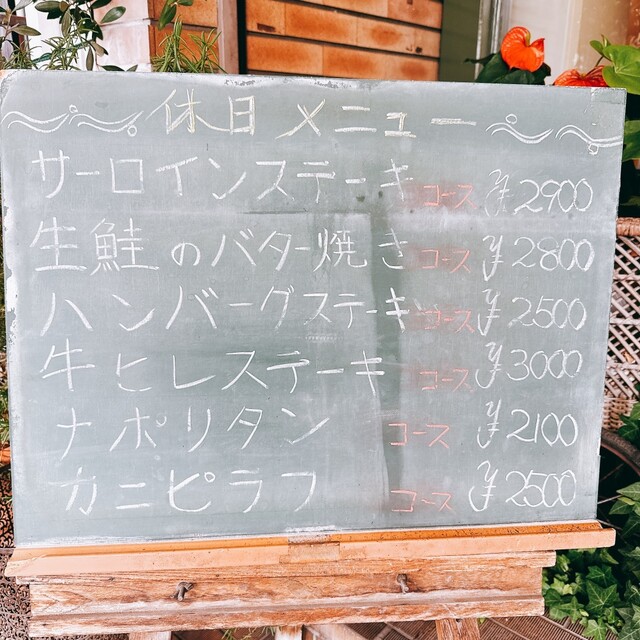 休日メニュー
サーロインステーキ コース ¥2900
生鮭のバター焼き コース ¥2800
ハンバーグステーキ コース ¥2500
牛ヒレステーキ コース ¥3000
ナポリタン コース ¥2100
カニピラフ コース ¥2500